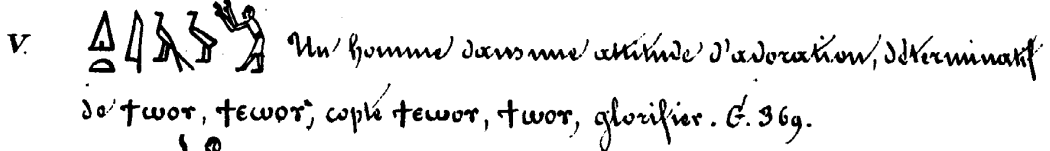 V. Un homme dans une attitude d'adoration, déterminatif
de ϯⲱⲟⲩ, ϯⲉⲱⲟⲩ; copte ϯⲉⲱⲟⲩ, ϯⲱⲟⲩ, glorifier. G. 369.